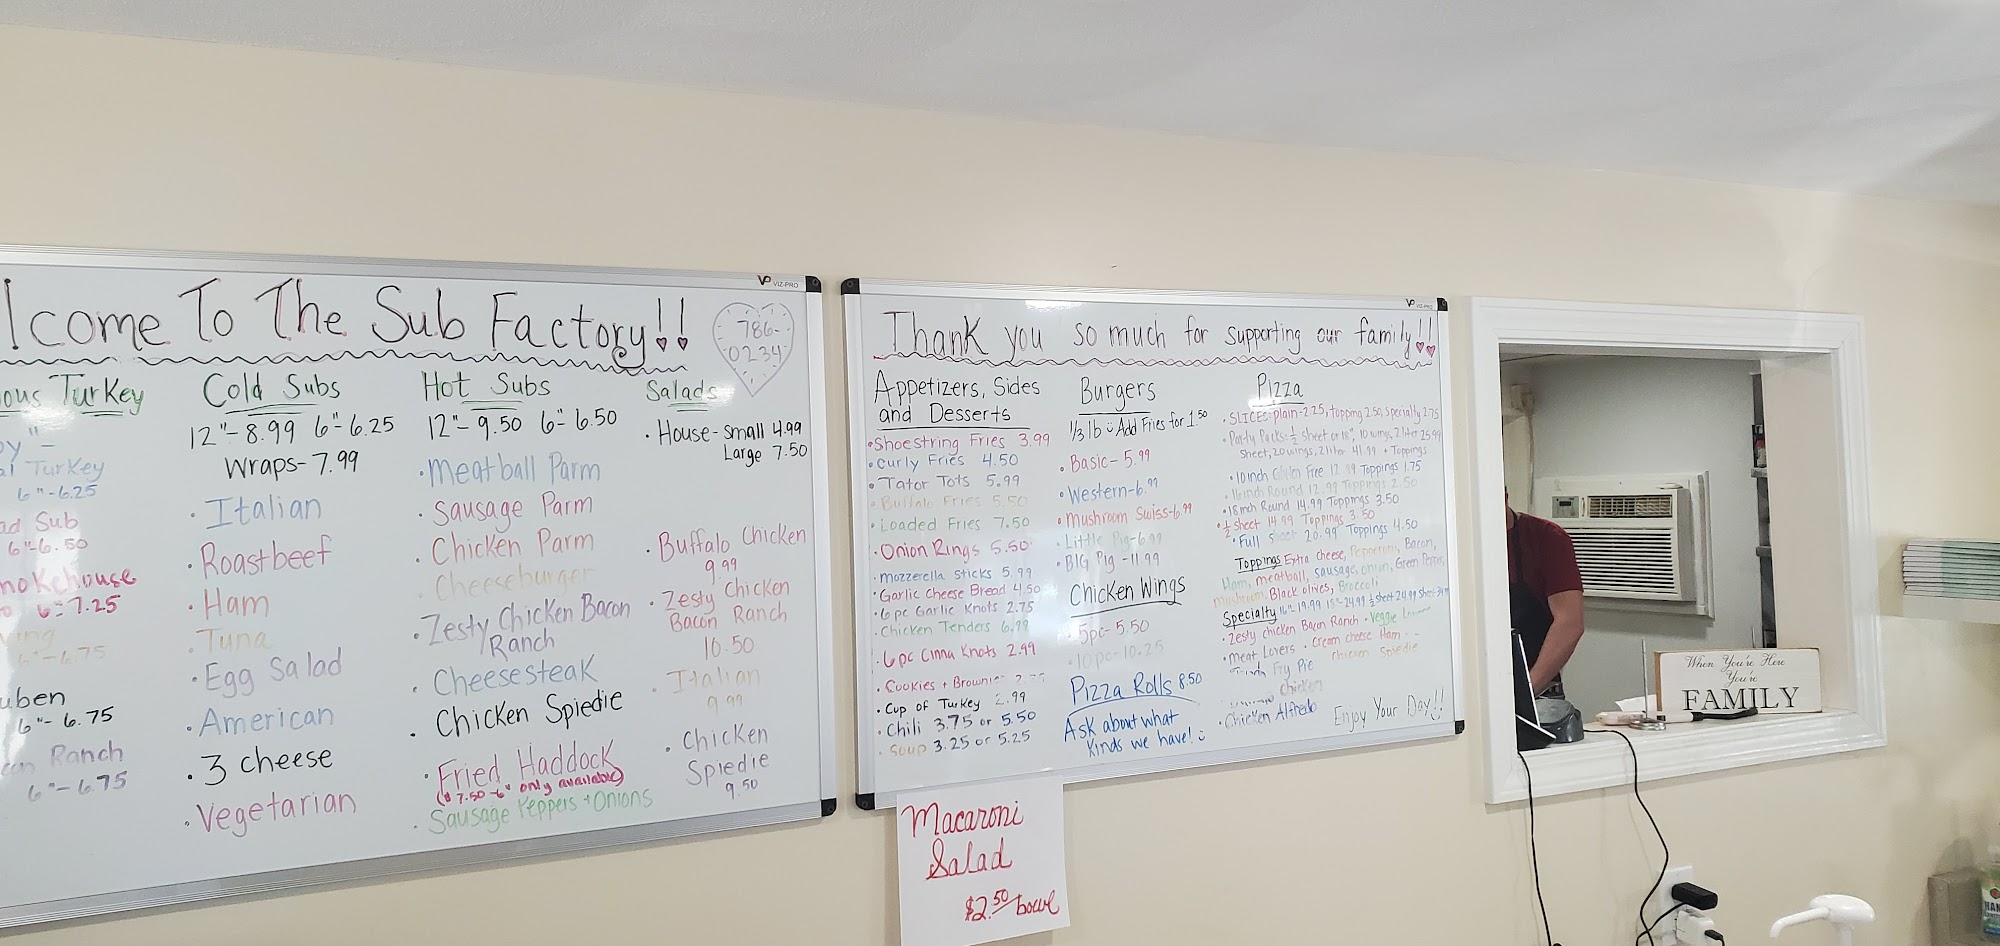 lcome To The Sub Factory!!
786-
0234
ous Turkey
l Turkey
6"-6.25
ad Sub
6"-6.50
mokehouse
6"-7.25
6"-6.75
uben
6"-6.75
Ranch
6"-6.75
Cold Subs
12"-8.99 6"-6.25
Wraps-7.99
·Italian
·Roastbeef
·Ham
·Tuna
·Egg Salad
·American
·3 cheese
·Vegetarian
Hot Subs
12"-9.50 6"-6.50
·Meatball Parm
·Sausage Parm
·Chicken Parm
·Cheeseburger
·Zesty Chicken Bacon
Ranch
·Cheesesteak
·Chicken Spiedie
·Fried Haddock
($7.50-6" only available)
·Sausage Peppers + Onions
Salads
·House-Small 4.99
Large 7.50
·Buffalo Chicken
9.99
·Zesty Chicken
Bacon Ranch
10.50
·Italian
9.99
·Chicken
Spiedie
9.50
VIZ-PRO
Thank you so much for supporting our family!!
Appetizers, Sides
and Desserts
·Shoestring Fries 3.99
·Curly Fries 4.50
·Tator Tots 5.99
·Buffalo Fries 5.50
·Loaded Fries 7.50
·Onion Rings 5.50
·Mozzerella Sticks 5.99
·Garlic Cheese Bread 4.50
·6pc Garlic Knots 2.75
·Chicken Tenders 6.99
·6pc Cinna Knots 2.99
·Cookies + Brownie
·Cup of Turkey 2.99
·Chili 3.75 or 5.50
·Soup 3.25 or 5.25
Burgers
1/3 lb Add Fries for 1.50
·Basic-5.99
·Western-6.99
·Mushroom Swiss-6.99
·Little Pig-6.99
·BIG Pig-11.99
Chicken Wings
·5pc-5.50
·10pc-10.25
Pizza Rolls 8.50
Ask about what
kinds we have!
Pizza
·SLICES-plain-2.25, topping 2.50, specialty 2.75
·Party Packs-½ Sheet or 18", 10 wings, 2 liter 25.99
Sheet, 20 wings, 2 liter 41.99 + Toppings
·10inch Gluten Free 12.99 Toppings 1.75
·16inch Round 12.99 Toppings 2.50
·18inch Round 14.99 Toppings 3.50
·½ Sheet 14.99 Toppings 3.50
·Full Sheet 20.99 Toppings 4.50
Toppings Extra cheese, Pepperoni, Bacon,
Ham, meatball, sausage, onion, Green Pepper,
mushroom, Black olives, Broccoli
Specialty 16"-19.99 18"-24.99 ½ sheet 24.99 sheet
·Zesty chicken Bacon Ranch ·Veggie
·Meat Lovers ·Cream cheese Ham
Fry Pie Chicken Spiedie
chicken
·Chicken Alfredo
Enjoy Your Day!!
Macaroni
Salad
$2.50/bowl
When You're Here
You're
FAMILY